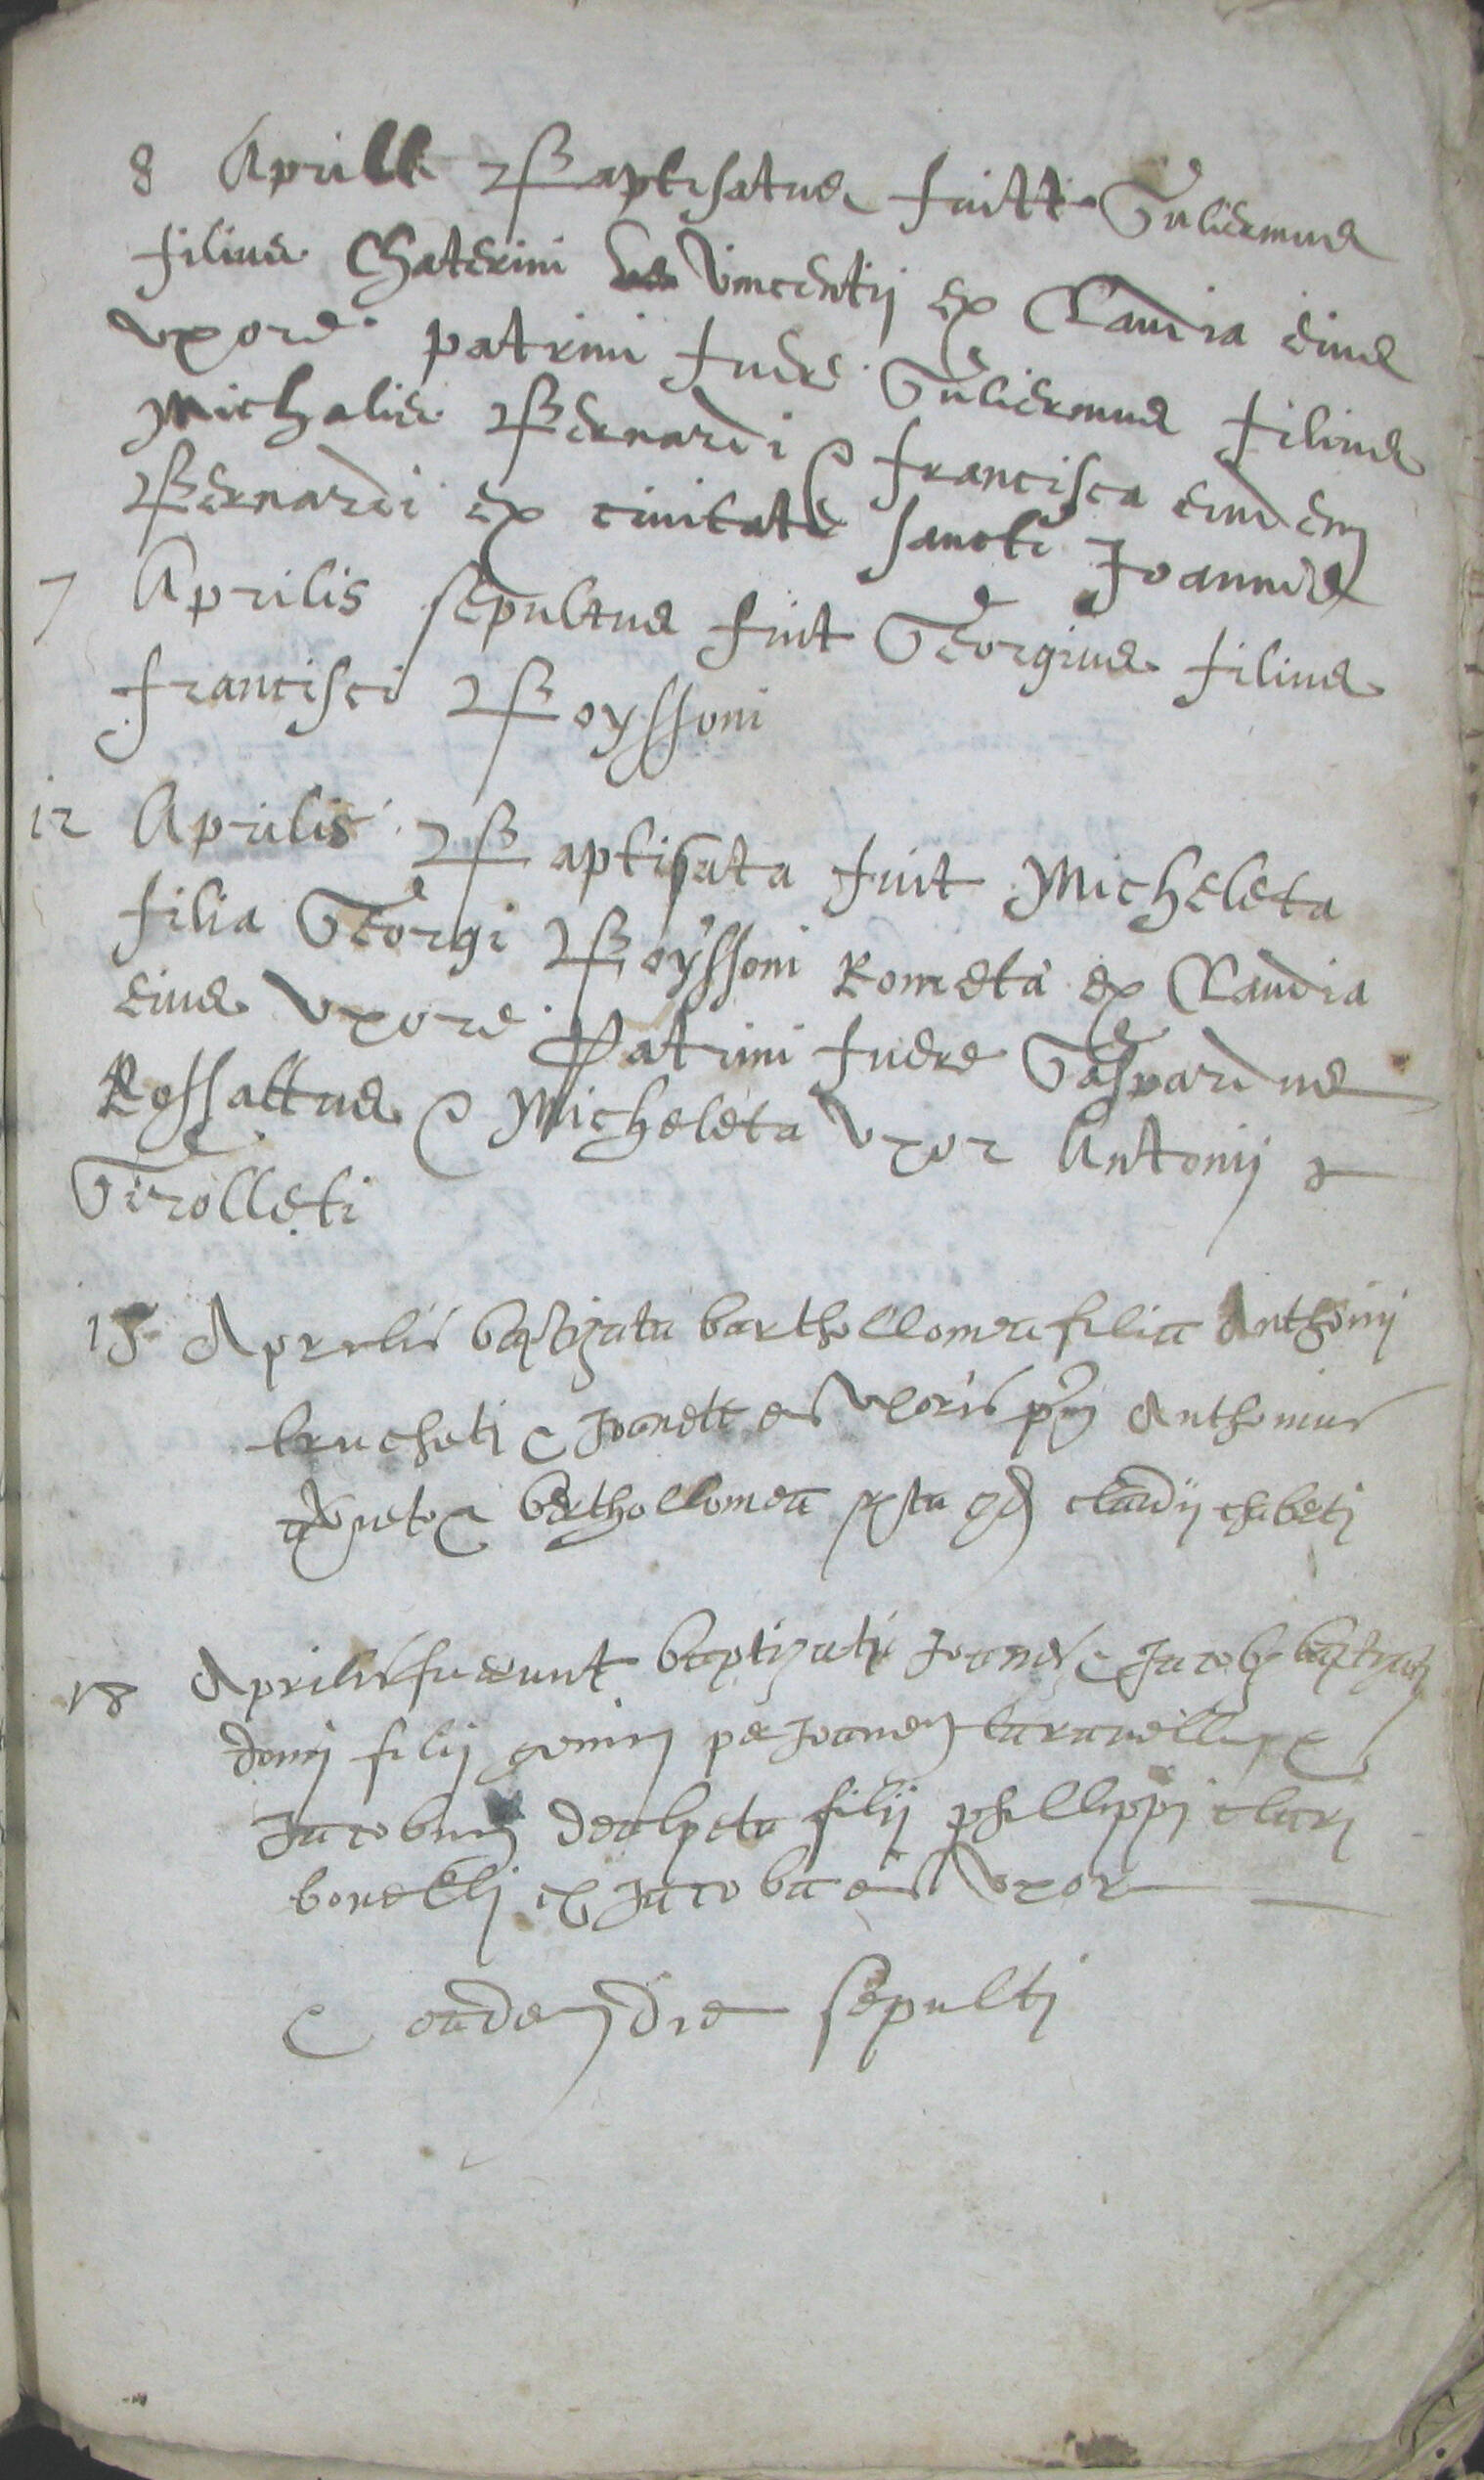 8 Aprill Baptisatus fuitt Guliermus
filius Chaterini Vincentij ex Claudia eius
vxore. patrini fuere Guliermus filius
Michalis Bernardi & francisca eiusdem
Bernardi ex ciuitate sancti Joannis
7 Aprilis sepultus fuit Georgius filius
francisci Boyssoni
12 Aprilis Baptisata fuit Micheleta
filia Georgi Boyssoni Rometa ex Claudia
eius vxore. Patrini fuere Gaspardus
Rossattus & Micheleta vxor Antonij
Girolleti
15 Aprilis baptizata barthollomea filia Anthonij
trucheti & Joanete eius vxoris Anthonius
& barthollomea claudij chabeti
18 Aprilis fuerunt baptizati Joanes & Jacobus baptizati
domj filij gemini per Joanem &
Jacobum dealpeta filij phillippi clarj
bonelli ex Jacoba eius vxor
& eadem die sepulti